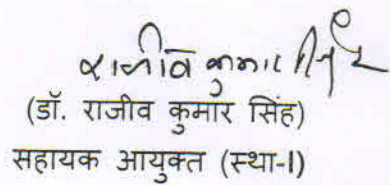 राजीव कुमार सिंह
(डॉ. राजीव कुमार सिंह)
सहायक आयुक्त (स्था-I)